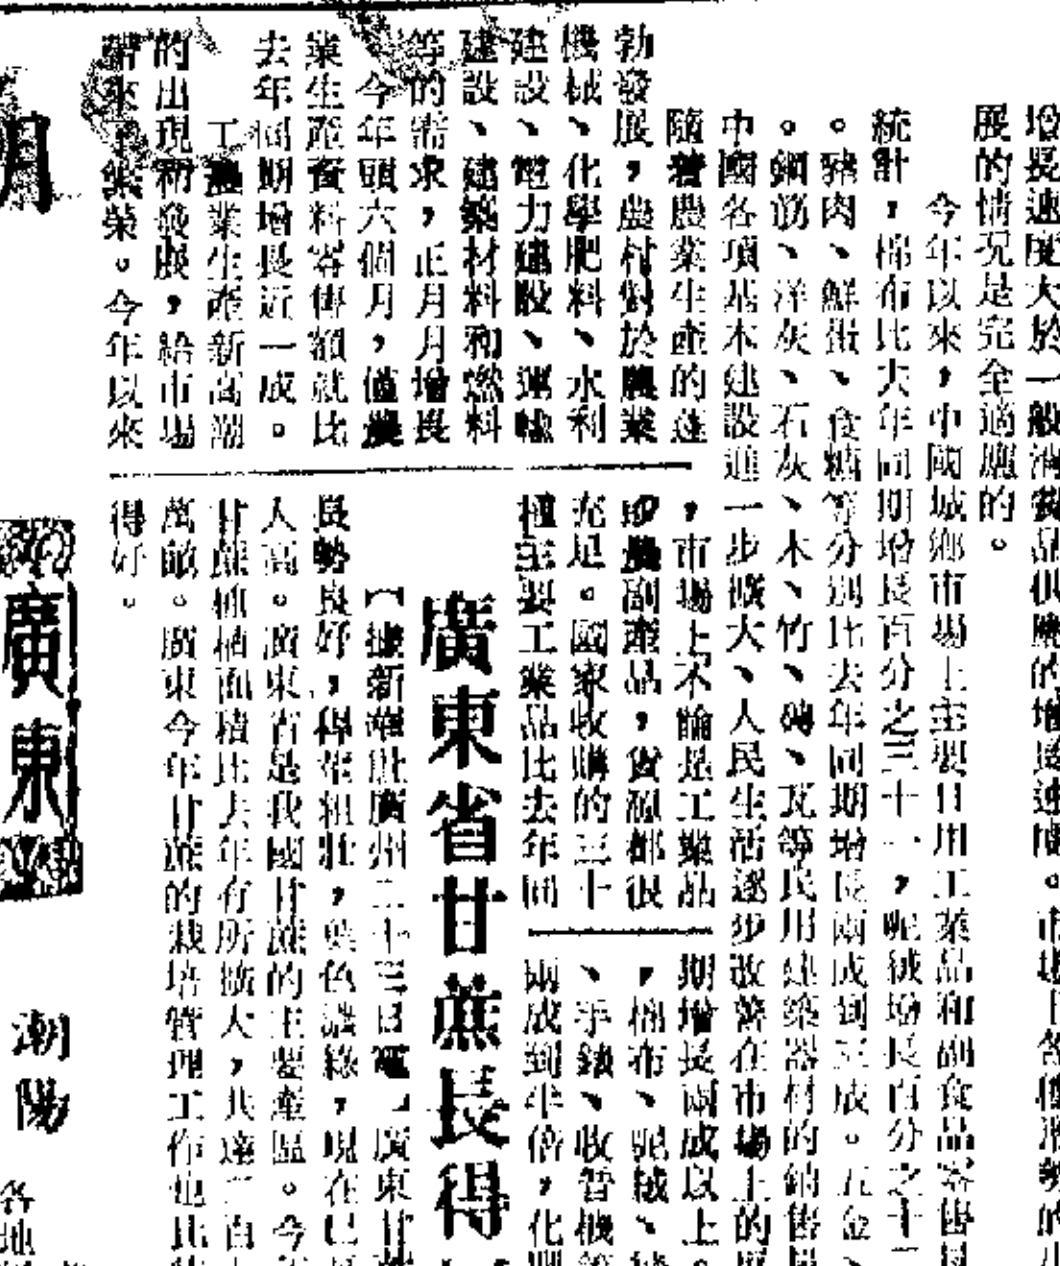 增長速度大於一般消費品供應的增長速度。市場上各種消費的
展的情況是完全適應的。
今年以來，中國城鄉市場上主要日用工業品和副食品零售量
統計，棉布比大年同期增長百分之三十一，呢絨增長百分之十二
。豬肉、鮮蛋、食糖等分別比去年同期增長兩成到三成。五金、
。鋼筋、洋灰、石灰、木、竹、磚、瓦等民用建築器材的銷售量
中國各項基本建設進一步擴大、人民生活逐步改善在市場上的
隨着農業生產的蓬
勃發展，農村對於農業
機械、化學肥料、水利
建設、電力建設、運輸
建設、建築材料和燃料
等的需求，正月月增長
今年頭六個月，僅農
業生產資料零售額就比
去年同期增長近一成。
工農業生產新高潮
的出現和發展，給市場
帶來了繁榮。今年以來
，市場上不論是工業品
或農副產品，貨源都很
充足。國家收購的三十
種主要工業品比去年同
期增長兩成以上。
，棉布、呢絨、
、手錶、收音機等
兩成到半倍，化肥
廣東省甘蔗長得
【據新華社廣州二十三日電】廣東甘
長勢良好，得莖粗壯，葉色濃綠，現在已
人高。廣東省是我國甘蔗的主要產區。今
甘蔗種植面積比去年有所擴大，共達二百
萬畝。廣東今年甘蔗的栽培管理工作也比
得好。
廣東
潮陽
各地